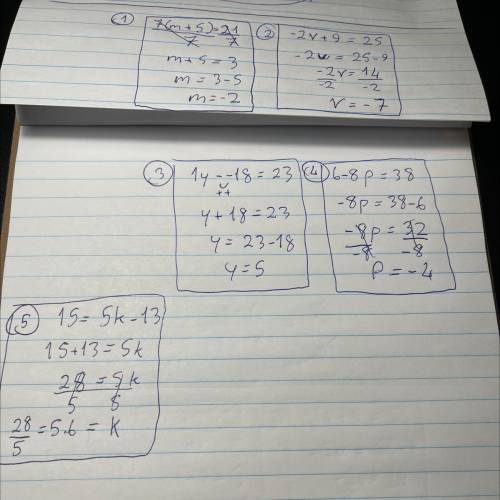 1
7(m+5)=21
7 7
m+5=3
m=3-5
m=-2
2
-2v+9=25
-2v=25-9
-2v=14
-2 -2
v=-7
3
1y--18=23
++
y+18=23
y=23-18
y=5
4
6-8p=38
-8p=38-6
-8p=32
-8 -8
P=-4
5
15=5k-13
15+13=5k
28=5k
5 5
28
5 =5.6=k